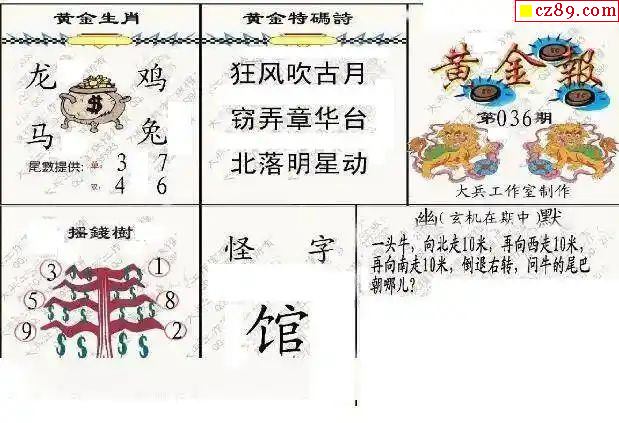 cz89.com
黄金生肖
龙 鸡
马 兔
尾數提供: 单: 3 7
双: 4 6
黄金特碼詩
狂风吹古月
窃弄章华台
北落明星动
黄金報
第036期
大兵工作室制作
摇錢樹
3 1
5 8
9 2
怪 字
馆
幽(玄机在其中)默
一头牛，向北走10米，再向西走10米，
再向南走10米，倒退右转，问牛的尾巴
朝哪儿？